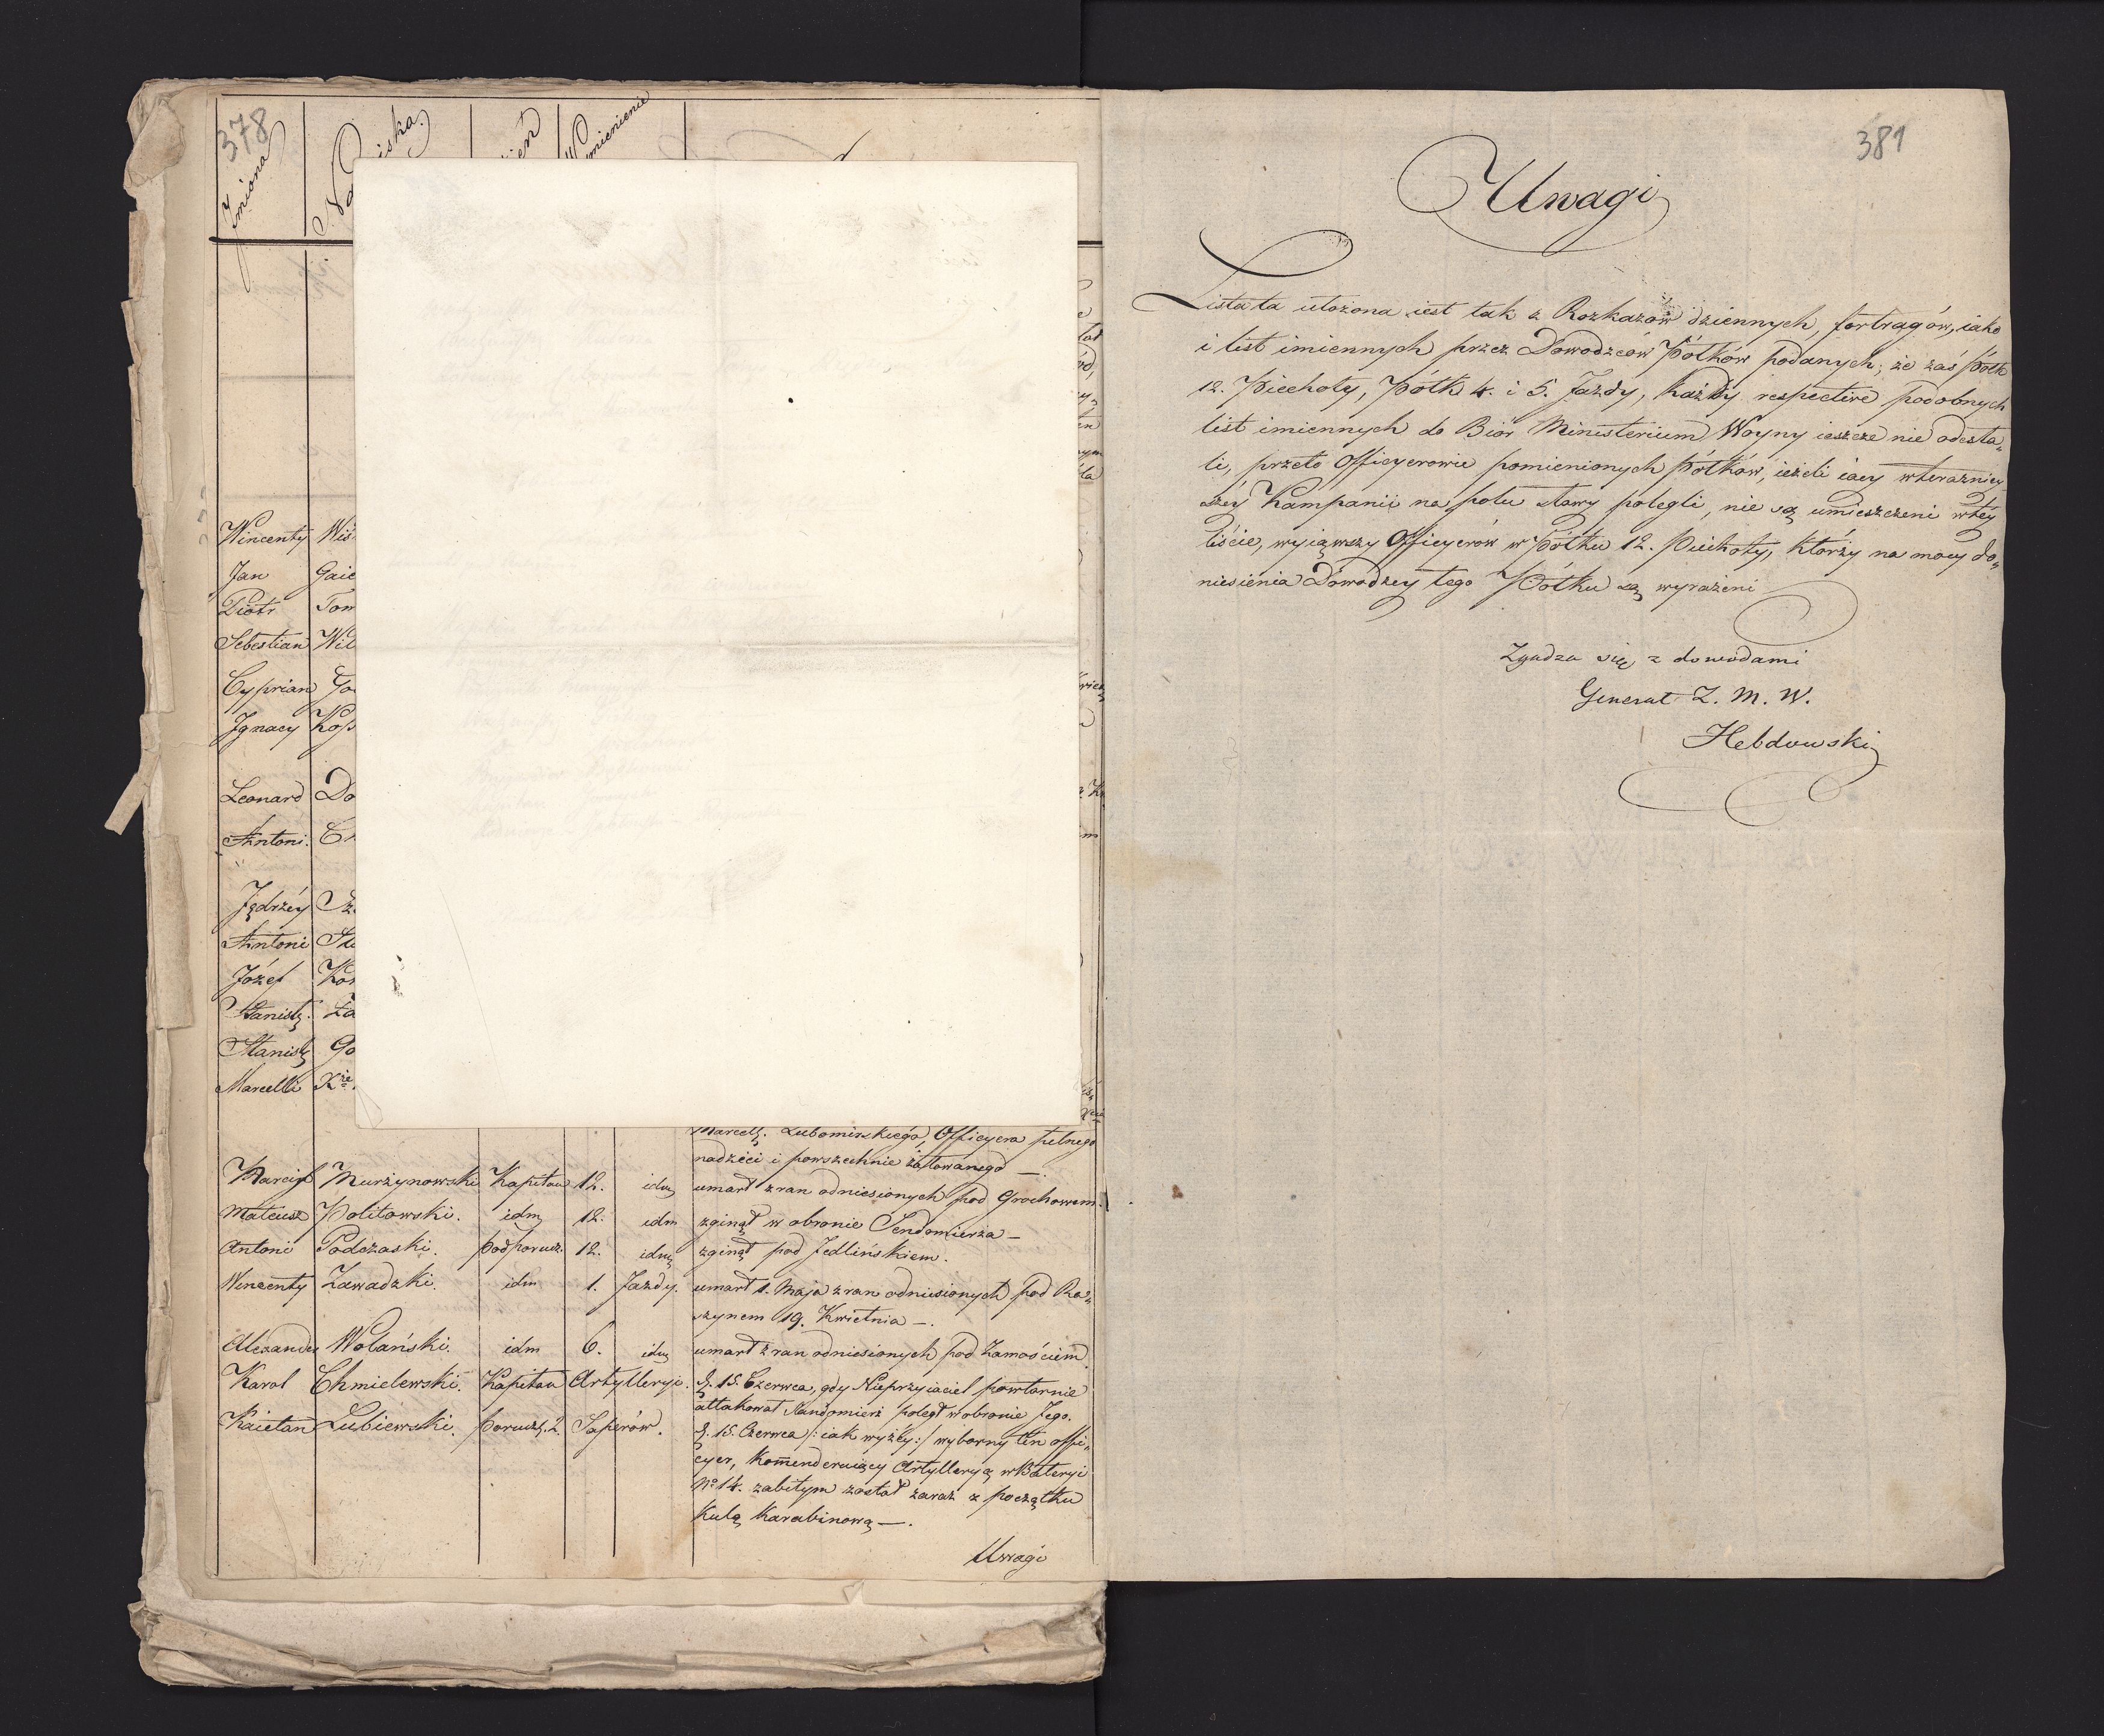 378
Jmiona
Wincenty Wiś
Jan Gaie
Piotr Tom
Sebestian Wil
Cyprian Go
Jgnacy Kos
Leonard Do
Antoni.
Jędrżéy
Antoni
Józef Kos
Stanisł. Za
Stanisł. Go
Marcelli Xże
Marcell. Lubomirskiego, Officyera pełnego
nadzieii i powszechnie żałowanego —.
Murżynowski Kapitan 12. idm umarł z ran odniesionych pod Grochowem.
Mateusz Politowski. idm 12. idm zginął w obronie Sendomierża —
Antoni Podczaski. podporucz. 12. idm zginął pod Jedlińskiem.
Wincenty Zawadzki. idm 1. Jazdy. umarł 1. Maja z ran odniesionych pod Ra„
szynem 19. Kwietnia —.
Alexander Wolański. idm 6. idm umarł z ran odniesionych pod Zamościem.
Karol Chmielewski. Kapitan Artylleryi. d. 15. Czerwca, gdy Nieprzyiaciel powtornie
attakował Sandomierz poległ w obronie Jego.
Kaietan Lubiewski. porucz. 2. Saperów. d. 15. Czerwca /: iak wyżéy :/ wyborny ten offi„
cyer, komenderuiący Artylleryą w Bateryi
No 14. zabitym został zaraz z początku
kulą karabinową —.
Uwagi
381
Uwagi
Lista ta ułożona iest tak z Rozkazów dziennych, fortragów, iako
i list imiennych przez Dowodzców Półków podanych; że zaś Półk
12. Piechoty, Półk 4. i 5. Jazdy, każdy respective podobnych
list imiennych do Biór Ministerium Woyny ieszcze nie odesła„
li, przeto Officyerowie pomienionych Półków, ieżeli iacy w teraźniey
széy Kampanii na polu sławy polegli, nie są umieszczeni w téy
liście, wyiąwszy Officyerów w Półku 12. Piechoty, którży na mocy do„
niesienia Dowodzcy tego Półku są wyrażeni
Zgadza się z dowodami
Generał Z. M. W.
Hebdowski